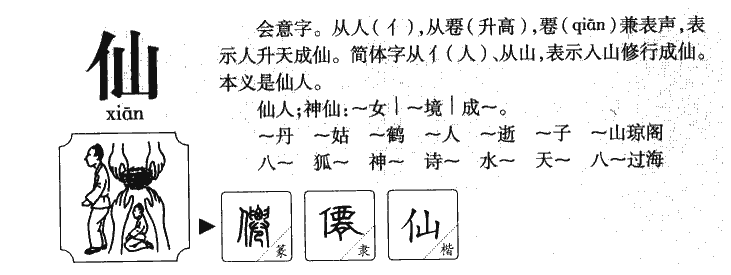 仙
xiān
会意字。从人(亻),从䙴(升高),䙴(qiān)兼表声,表
示人升天成仙。简体字从亻(人)、从山,表示入山修行成仙。
本义是仙人。
仙人;神仙:～女|～境|成～。
～丹 ～姑 ～鹤 ～人 ～逝 ～子 ～山琼阁
八～ 狐～ 神～ 诗～ 水～ 天～ 八～过海
僊 篆
僊 隶
仙 楷